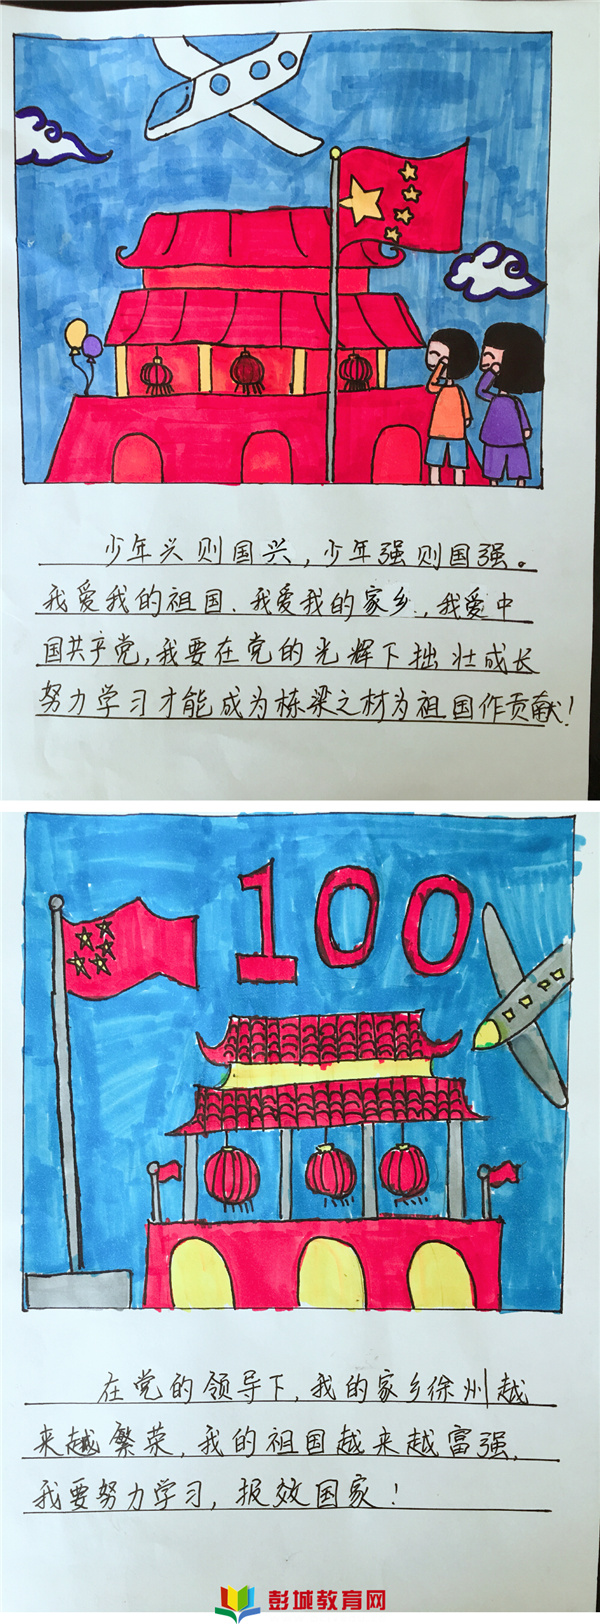 少年兴则国兴，少年强则国强。
我爱我的祖国、我爱我的家乡，我爱中
国共产党，我要在党的光辉下拙壮成长
努力学习才能成为栋梁之材为祖国作贡献！
100
在党的领导下，我的家乡徐州越
来越繁荣，我的祖国越来越富强，
我要努力学习，报效国家！
彭城教育网